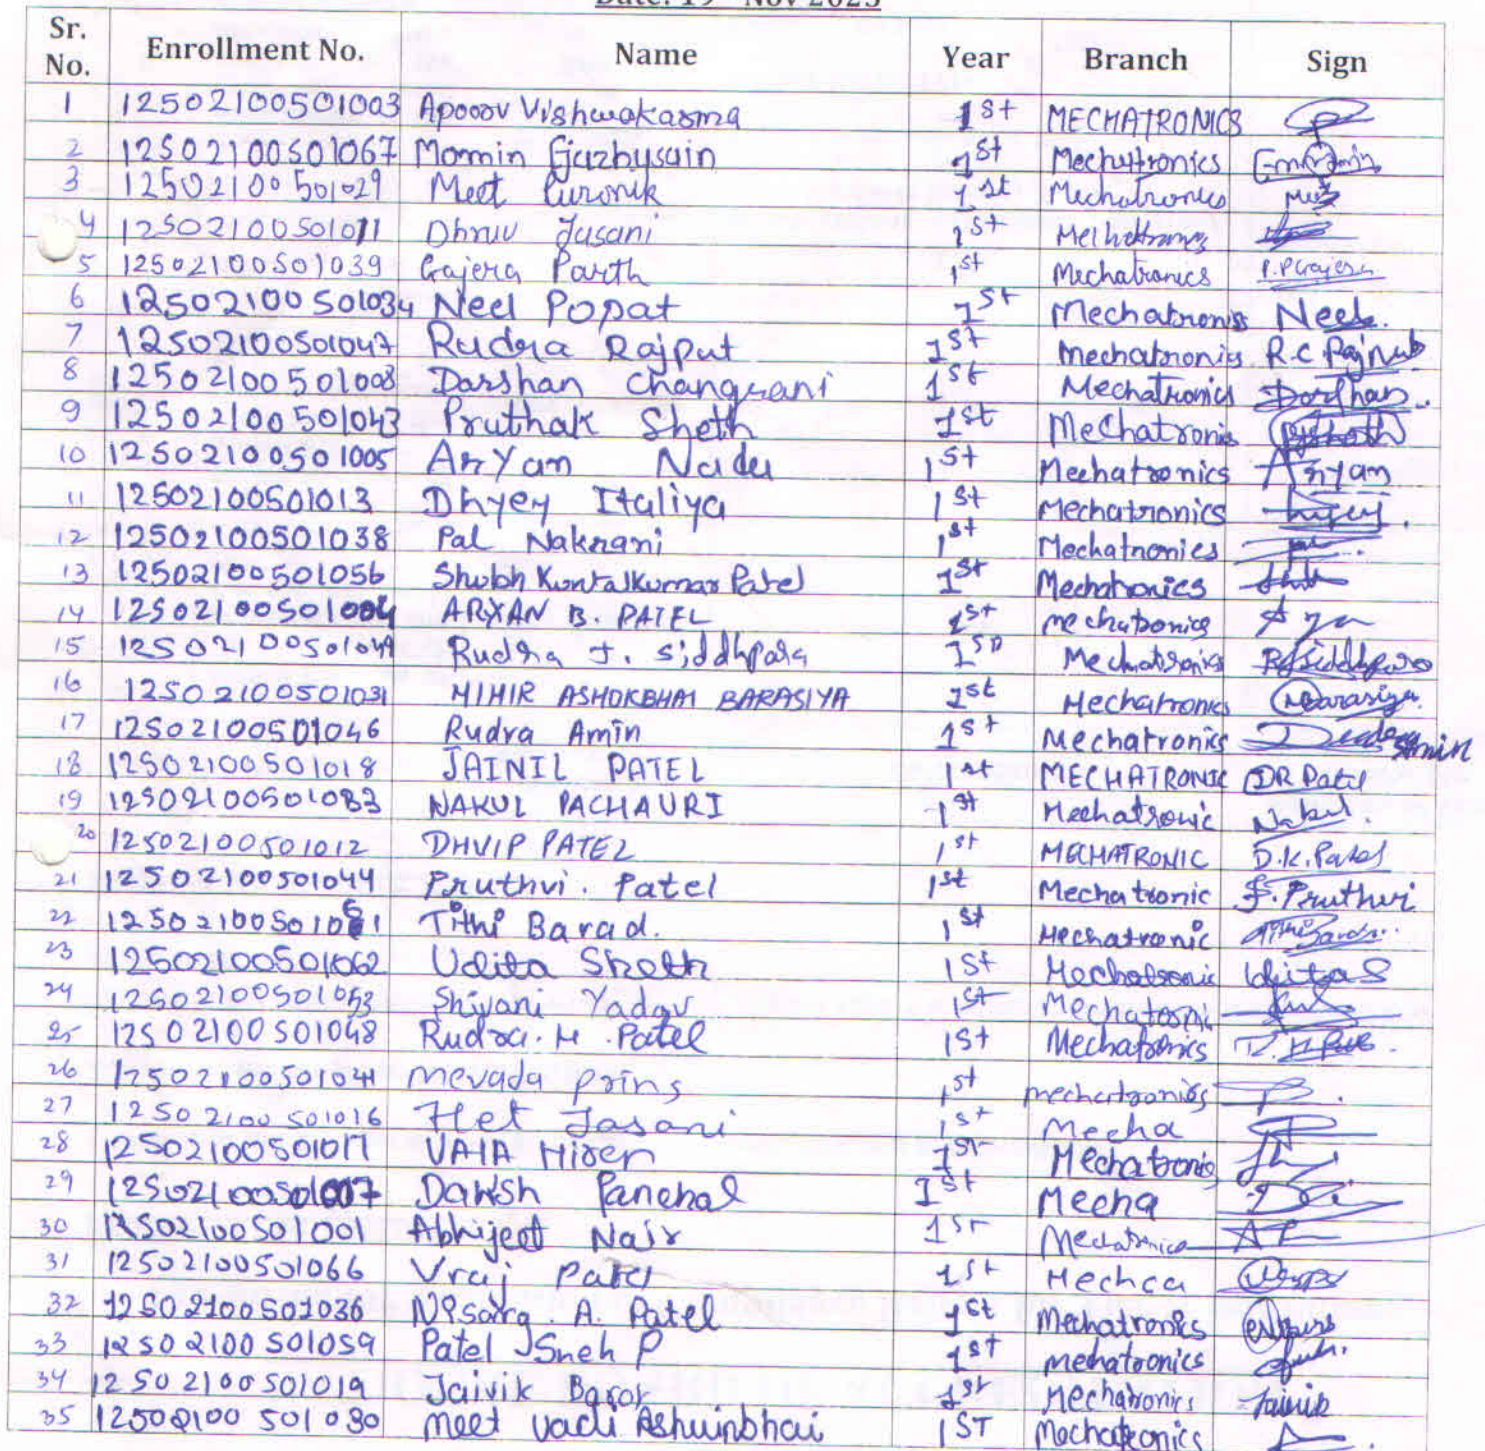 Date: 19 Nov 2025
Sr. No. Enrollment No. Name Year Branch Sign
1 12502100501003 Apooov Vishwakasma 1st MECHATRONICS
2 12502100501067 Momin Ejazhusain 1st Mechatronics
3 12502100501029 Meet 1st Mechatronics Meet
4 12502100501011 Dhruv Jasani 1st Mechatronics
5 12502100501039 Gajera Parth 1st Mechatronics P.P.Gajera
6 12502100501034 Neel Popat 1st Mechatronis Neel.
7 12502100501047 Rudra Rajput 1st Mechatronis R.C.Rajput
8 12502100501008 Darshan Changrani 1st Mechatronics Darshan.
9 12502100501043 Pruthak Sheth 1st Mechatronis
10 12502100501005 Aryan Nadu 1st Mechatronics Aryan
11 12502100501013 Dhyey Italiya 1st Mechatronics
12 12502100501038 Pal Naknani 1st Mechatnonics
13 12502100501056 Shubh Kuntalkumar Patel 1st Mechatronics
14 12502100501004 ARYAN B. PATEL 1st mechatronics
15 12502100501049 Rudra J. Siddhpara 1st Mechatronics RJSiddhpara
16 12502100501031 MIHIR ASHOKBHAI BARASIYA 1st Mechatronics Barasiya
17 12502100501046 Rudra Amin 1st Mechatronics Amin
18 12502100501018 JAINIL PATEL 1st MECHATRONIC
19 12502100501033 NAKUL PACHAURI 1st Mechatronic Nakul.
20 12502100501012 DHVIP PATEL 1st MECHATRONIC D.K.Patel
21 12502100501044 Pruthvi. Patel 1st Mechatronic P.Pruthvi
22 12502100501061 Tithi Barad. 1st Mechatronic
23 12502100501062 Udita Sheth 1st Mechatronic Udita S
24 12502100501053 Shivani Yadav 1st Mechatroni
25 12502100501048 Rudra. H. Patel 1st Mechatronics
26 12502100501041 mevada prins 1st mechatronics
27 12502100501016 Het Jasani 1st Mecha
28 12502100501017 VAJA Hiren 1st Mechatronis
29 12502100501007 Daksh Panchal 1st Mecha
30 12502100501001 Abhijeet Nair 1st Mechatronics
31 12502100501066 Vraj Patel 1st Mechca
32 12502100501036 Nisarg. A. Patel 1st Mechatronics
33 12502100501059 Patel Sneh P 1st mechatronics
34 12502100501019 Jaivik Baror 1st Mechatronics Jaivik
35 12502100501030 Meet Vadi Ashwinbhai 1ST Mechatronics